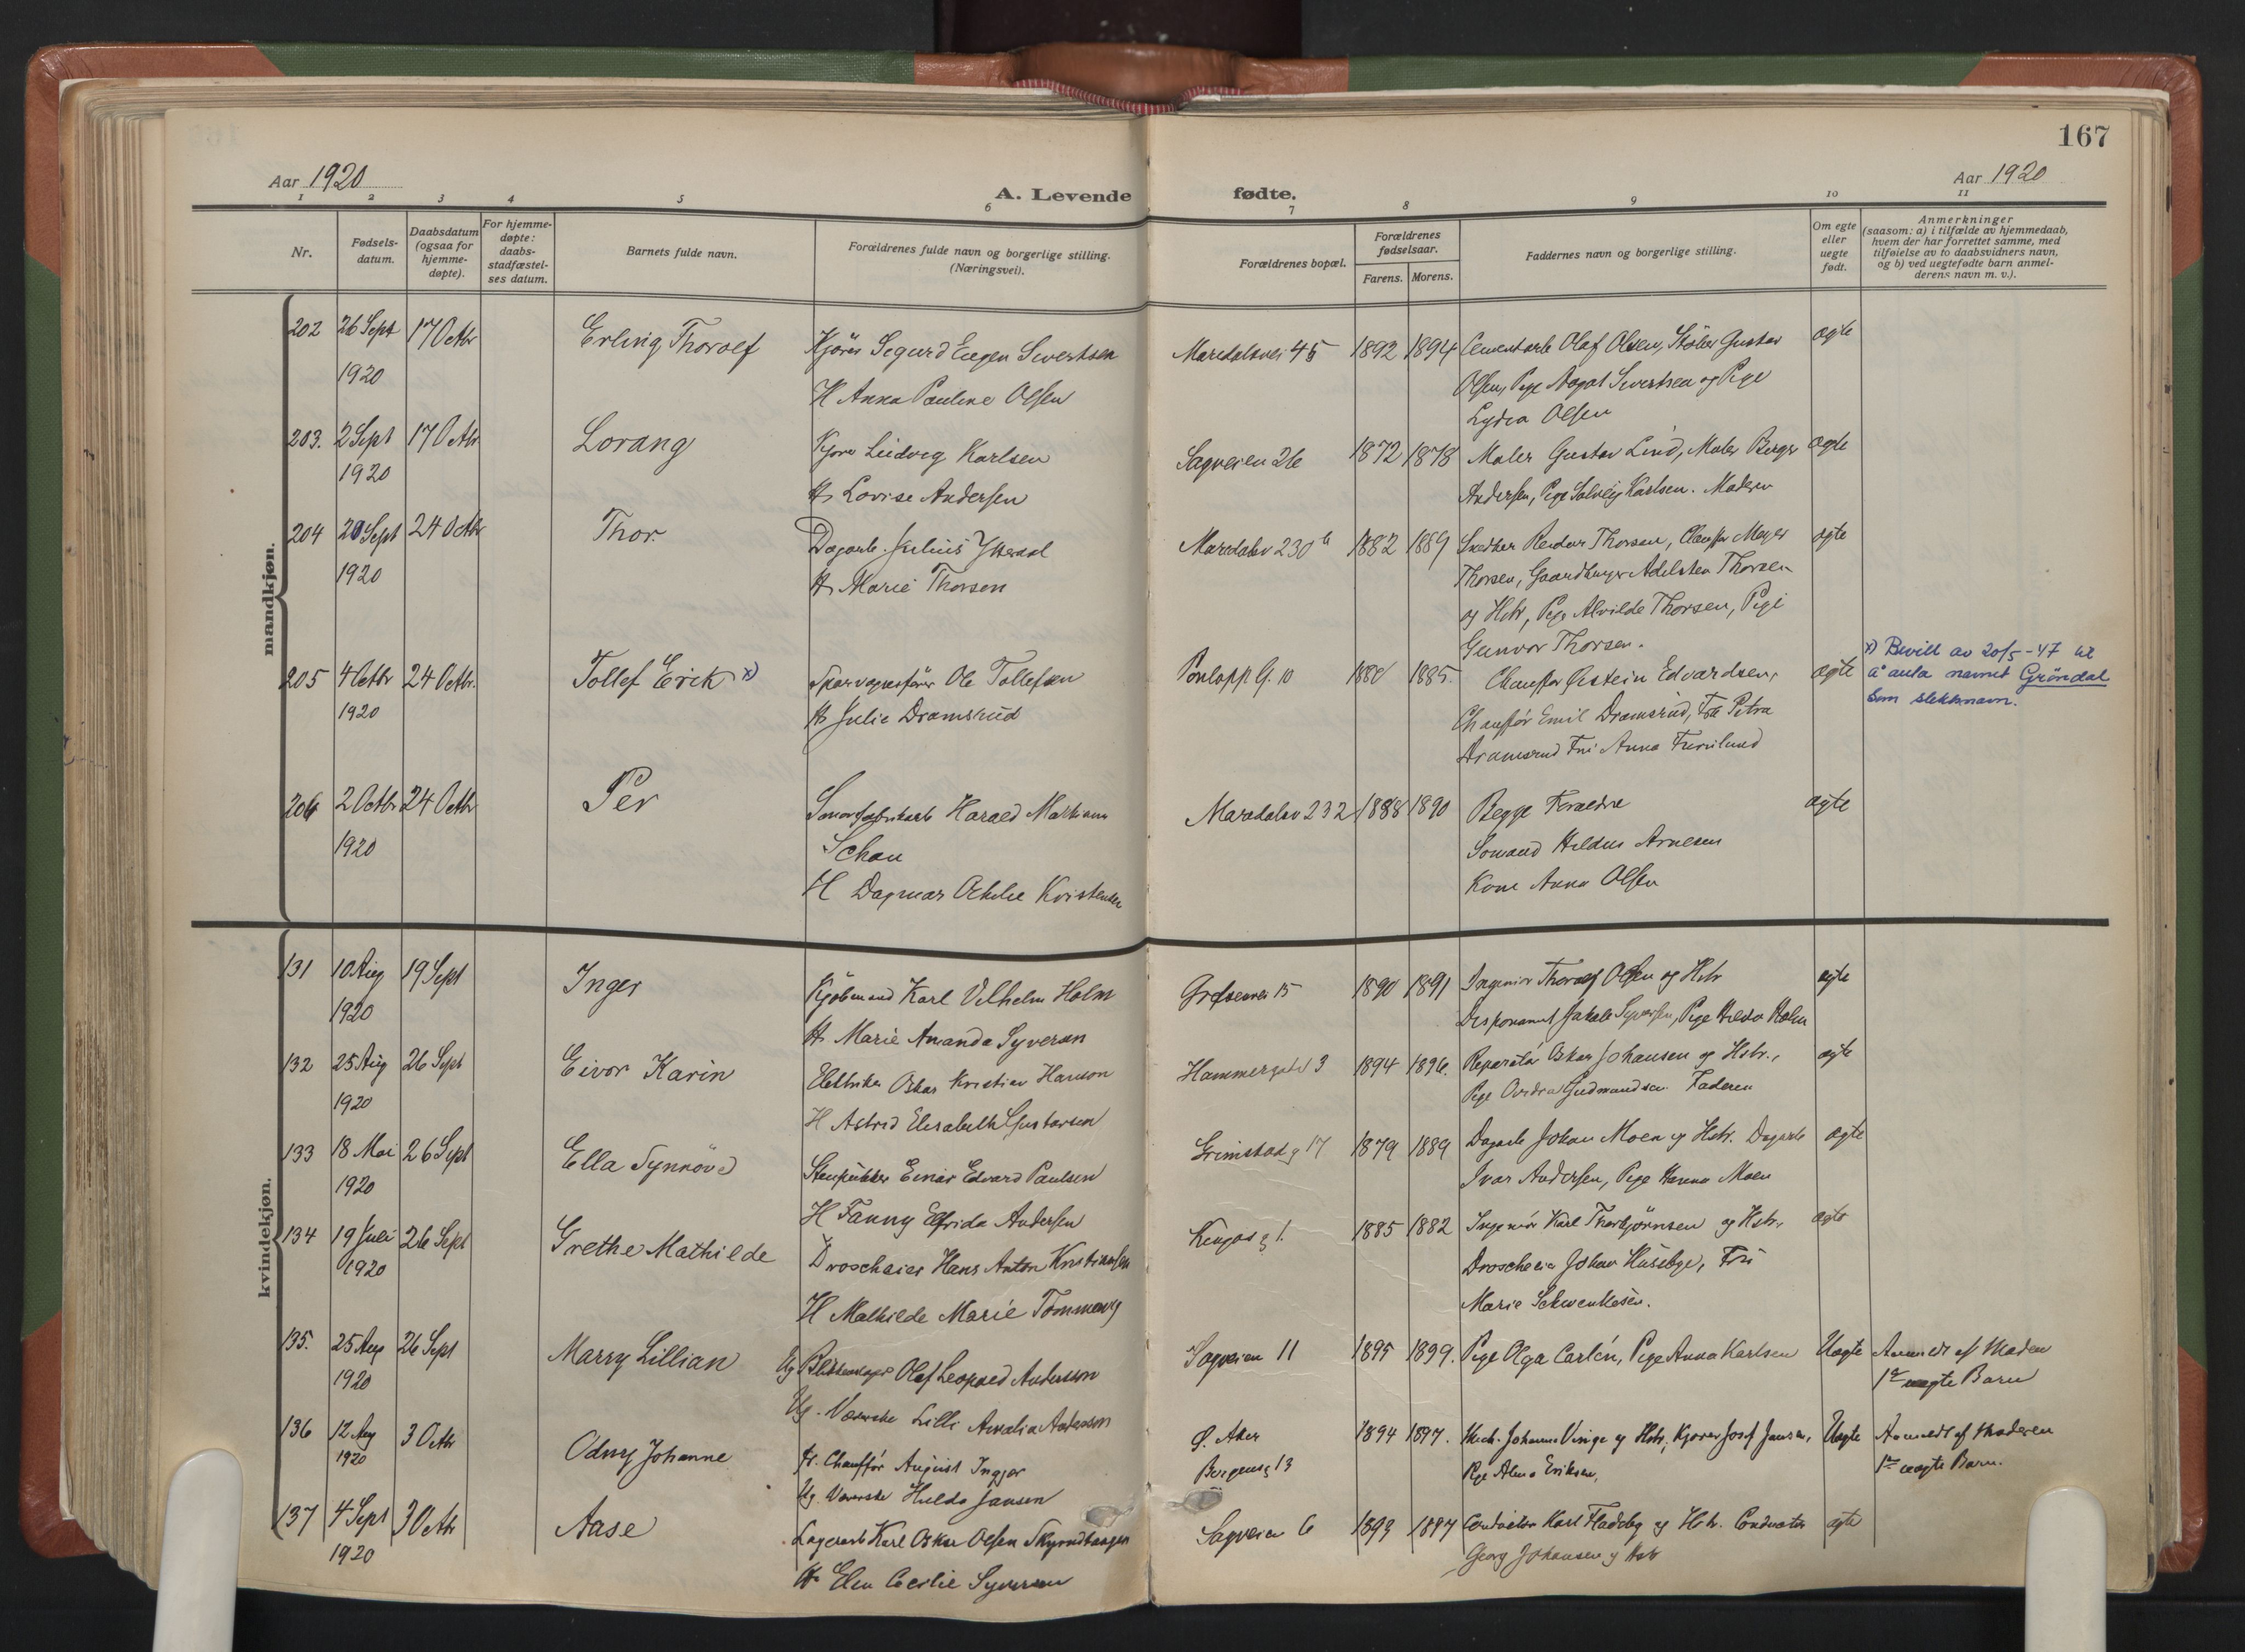 167
Aar 1920
Aar 1920
A. Levende fødte.
1 2 3 4 5 6 7 8 9 10 11
Nr.
Fødsels-
datum.
Daabsdatum
(ogsaa for
hjemme-
døpte).
For hjemme-
døpte:
daabs-
stadfæstel-
ses datum.
Barnets fulde navn.
Forældrenes fulde navn og borgerlige stilling.
(Næringsvei).
Forældrenes bopæl.
Forældrenes
fødselsaar.
Farens. Morens.
Faddernes navn og borgerlige stilling.
Om egte
eller
uegte
født.
Anmerkninger
(saasom: a) i tilfælde av hjemmedaab,
hvem der har forrettet samme, med
tilføielse av to daabsvidners navn,
og b) ved uegtefødte barn anmel-
derens navn m. v.).
mandkjøn.
202 26 Sept 17 Octbr Erling Thoralf Kjører Sigurd Eugen Sivertsen Maridalsvei 45 1892 1894 Cementarb Olaf Olsen, Støber Gustav ægte
1920 H Anna Pauline Olsen Olsen, Pige Aagot Sivertsen og Pige
Lydia Olsen
203. 2 Sept 17 Octbr Lorang Kjører Ludvig Karlsen Sagveien 26 1872 1878 Maler Gustav Lind, Maler Birger ægte
1920 H. Lovise Andersen Andersen, Pige Solveig Karlsen. Moderen
204 20 Sept 24 Octbr Thor. Dagarb. Julius Maridalsv 230 b 1882 1889 Snedker Reidar Thorsen, Chauffør Meyer ægte
1920 H. Marie Thorsen Thorsen, Gaardbruger Adelsten Thorsen
og Hstr, Pige Alvilde Thorsen, Pige
Gunvor Thorsen.
205 4 Octbr 24 Octbr. Tollef Erik x) Sporvognsfører Ole Tollefsen G. 10 1885. Chauffør Øistein Edvardsen, ægte
1920 H Julie Dramsrud Chauffør Emil Dramsrud, Petra
Dramsrud Fru Anna Furulund
x) Bevill av 20/5-47 til
å anta navnet Gröndal
som slektsnavn.
206 2 Octbr 24 Octbr Per Harald Maridalsv 232 1888 1890 Begge Forældre ægte
1920 Schou Arnesen
H Dagmar Othilie Kristensen Kone Anna Olsen
kvindekjøn.
131 10 Aug 19 Sept Inger Kjøbmand Karl Vilhelm Holm Grefsenvei 15 1890 1891 Ingeniør Thoralf Olsen og Hstr ægte
1920 H. Marie Amanda Syversen Disponent Jakob Syversen, Pige Hilda Holm
132 25 Aug 26 Sept Eivor Karin Elektriker Oskar Kristian Hanson Hammergata 3 1894 1896. Reparatør Oskar Johansen og Hstr., ægte
1920 H Astrid Elisabeth Gustavsen Pige Gudmundsen Faderen
133 18 Mai 26 Sept Ella Synnöve Stenpukker Einar Edvard Paulsen Grimstadg 17 1879 1889 Dagarb Johan Moen og Hstr. Dagarb ægte
1920 H Fanny Elfrida Andersen Ivar Andersen, Pige Moen
134 19 Juli 26 Sept Grethe Mathilde Droscheeier Hans Anton Kristiansen 1. 1885 1882 Ingeniør Karl Thorbjørnsen og Hstr, ægte
1920 H Mathilde Marie Tømmervig Droscheeier Johan Huseby, Fru
Marie Schwenkesen.
135. 25 Aug 26 Sept Marry Lillian Ug Blikkenslager Olaf Leopold Anderson Sagveien 11 1895 1899. Pige Olga Carlén, Pige Anna Karlsen Uægte Anmeldt af Moderen
1920 Ug. Væverske Lilli Amalia Anderson 1ste uægte Barn
136 12 Aug 3 Octbr Odny Johanne Fr. Chauffør August Ø. Aker 1894 1897. Johannes Vinge og Hstr, Kjører Josef Jansen, Uægte Anmeldt af Moderen
1920 Ug. Væverske Hulda Jansen Bergensg 13 Pige Alma Eriksen, 1ste uægte Barn.
137 4 Sept 3 Octbr Aase Lagerarb Karl Oskar Olsen Sagveien 6 1893 1897 Conductør Karl Fladeby og Hstr. Conductør ægte
1920 H. Elen Cecilie Syversen Georg Johansen og Hstr